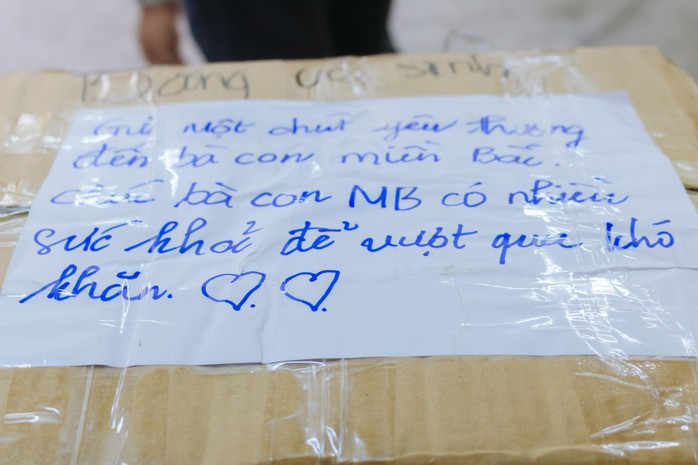 Băng vệ sinh
Gửi một chút yêu thương
đến bà con miền Bắc.
chúc bà con MB có nhiều
sức khoẻ để vượt qua khó
khăn. ♡. ♡.